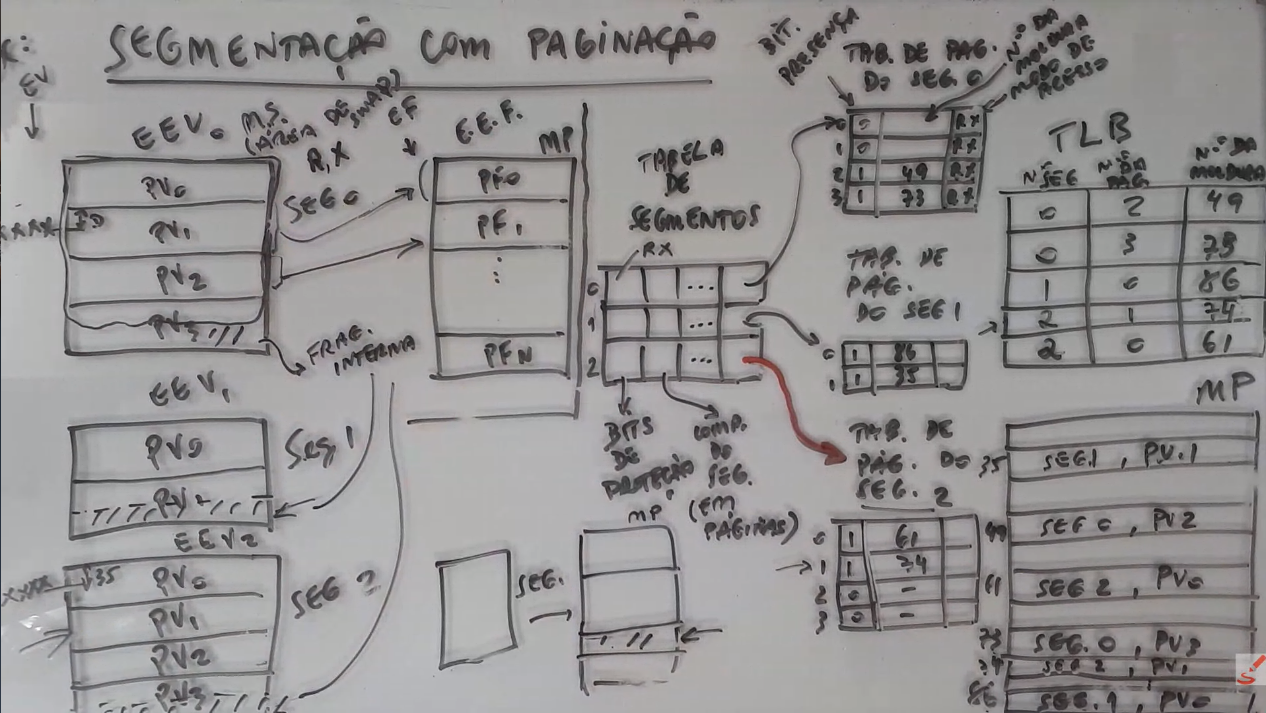 SEGMENTAÇÃO COM PAGINAÇÃO
EV
EEV0
M.S.
(ÁREA DE SWAP)
R,X
SEG 0
PV0
PV1
PV2
PV3
FRAG.
INTERNA
EEV1
PV0
SEG 1
EEV2
PV0
PV1
PV2
PV3
SEG 2
EF
E.E.F.
MP
PF0
PF1
⋮
PFN
TABELA
DE
SEGMENTOS
RX
0 ...
1 ...
2 ...
BITS
DE
PROTEÇÃO
COMP.
DO
SEG.
(EM
PÁGINAS)
SEG.
MP
BIT.
PRESENÇA
TAB. DE PAG.
DO SEG 0
N.º DA
MOLDURA
MODO DE
ACESSO
0 0 RX
1 0 RX
2 1 49 RX
3 1 73 RX
TAB. DE
PÁG.
DO SEG 1
0 1 86
1 1 35
TAB. DE
PÁG. DO
SEG. 2
0 1 61
1 1 74
2 0 -
3 0 -
TLB
Nº SEG Nº DA PAG. N.º DA MOLDURA
0 2 49
0 3 73
1 0 86
2 1 74
2 0 61
MP
35 SEG.1, PV.1
49 SEG 0, PV2
61 SEG 2, PV0
73 SEG.0, PV3
74 SEG 2, PV1
86 SEG.1, PV0